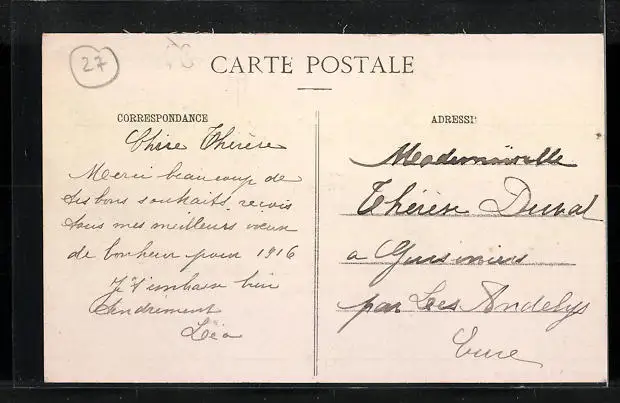 27
CARTE POSTALE
CORRESPONDANCE
Chère Thérèse
Merci beaucoup de
tes bons souhaits, reçois
tous mes meilleurs vœux
de bonheur pour 1916
Je t'embrasse bien
tendrement
Léa
ADRESSE
Mademoiselle
Thérèse Duval
a
par Les Andelys
Eure